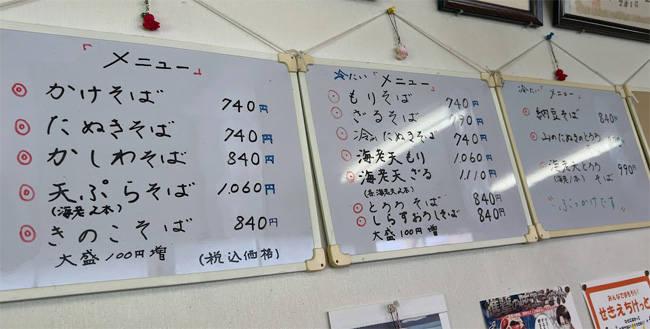 「メニュー」
◎ かけそば 740円
◎ たぬきそば 740円
◎ かしわそば 840円
◎ 天ぷらそば 1,060円
(海老2本)
◎ きのこそば 840円
大盛100円増 (税込価格)
冷たい「メニュー」
◎ もりそば 740円
◎ ざるそば 790円
◎ 冷したぬきそば 740円
◎ 海老天もり 1,060円
◎ 海老天ざる 1,110円
(各海老天2本)
◎ とろろそば 840円
◎ しらすおろしそば 840円
大盛100円増
冷たい「メニュー」
◎ 納豆そば 840円
◎ 山のたぬきのとろろ
◎ 海老天とろろ 990円
(海老1本) そば
ぶっかけです
みんなでまもろう!
せきえちけっと